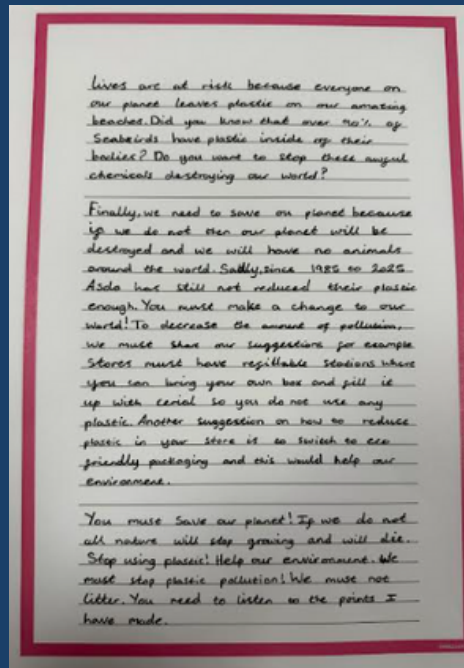 Lives are at risk because everyone on
our planet leaves plastic on our amazing
beaches. Did you know that over 90% of
Seabeirds have plastic inside of their
bodies? Do you want to stop these awful
chemicals destroying our world?
Finally, we need to save our planet because
if we do not then our planet will be
destroyed and we will have no animals
around the world. Sadly, since 1985 to 2025
Asda has still not reduced their plastic
enough. You must make a change to our
world! To decrease the amount of pollution,
we must share our suggestions for example
Stores must have refillable stations where
you can bring your own box and fill it
up with cerial so you do not use any
plastic. Another suggestion on how to reduce
plastic in your store is to switch to eco
friendly packaging and this would help our
environment.
You must save our planet! If we do not
all nature will stop growing and will die.
Stop using plastic! Help our environment. We
must stop plastic pollution! We must not
litter. You need to listen to the points I
have made.